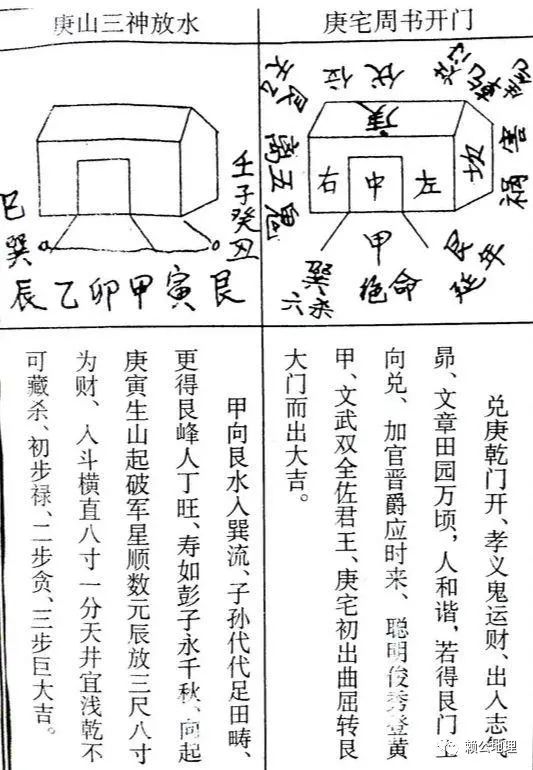 庚宅周书开门
伏位
庚
离五鬼
右 中 左
坎
祸害
甲
巽
六杀
绝命
艮
延年
兑庚乾门开、孝义鬼运财、出入志气
昂、文章田园万顷，人和谐，若得艮门上
向兑、加官晋爵应时来、聪明俊秀登黄
甲、文武双全佐君王、庚宅初出曲屈转艮
大门而出大吉。
庚山三神放水
壬子癸丑
巳巽
辰乙卯甲寅艮
甲向艮水入巽流、子孙代代足田畴、
更得艮峰人丁旺、寿如彭子永千秋、向起
庚寅生山起破军星顺数元辰放三尺八寸
为财、入斗横直八寸一分天井宜浅乾不
可藏杀、初步禄、二步贪、三步巨大吉。
赖公地理